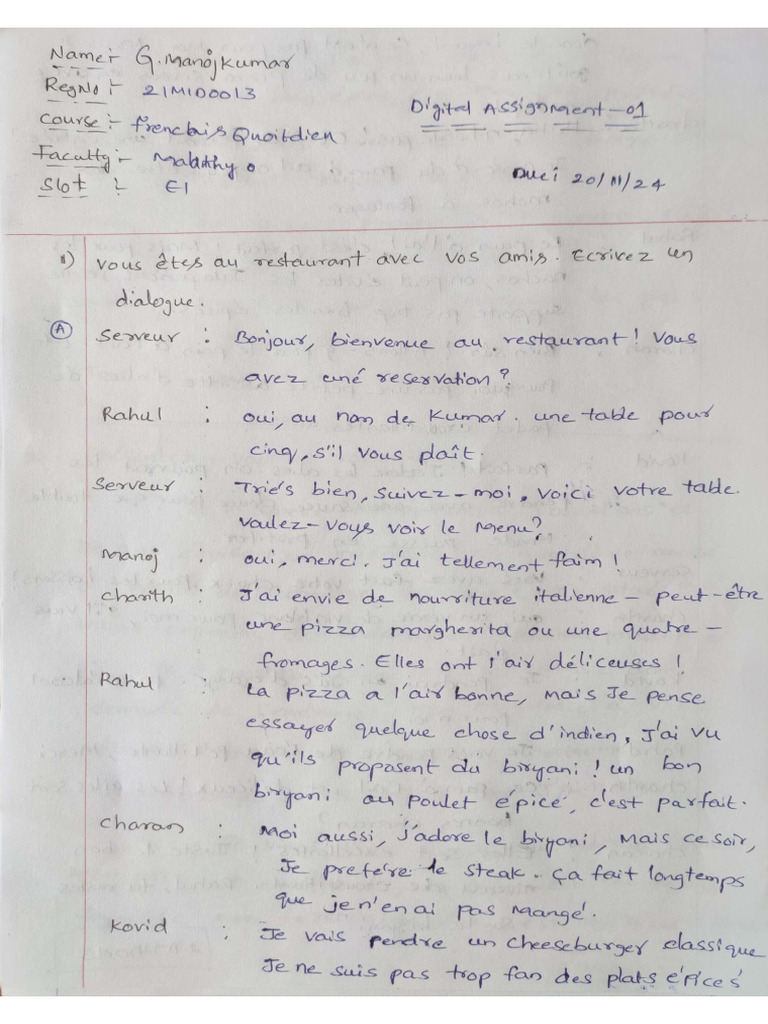 Name:- G. Manojkumar
RegNo:- 21MID0013
Digital Assignment-01
Course:- Frenchais Quoitdien
Faculty:- Malathy
Due: 20/11/24
Slot :- E1
1) Vous êtes au restaurant avec vos amis. Ecrivez un
dialogue.
A Serveur : Bonjour, bienvenue au restaurant! Vous
avez uné reservation?
Rahul : oui, au nom de Kumar. une table pour
cinq, s'il vous plaît.
Serveur : Triés bien, suivez-moi, voici votre table.
voulez-vous voir le menu?
Manoj : oui, merci. J'ai tellement faim!
Charith : J'ai envie de nourriture italienne - peut-être
une pizza margherita ou une quatre-
fromages. Elles ont l'air déliceuses!
Rahul : La pizza a l'air bonne, mais Je pense
essayer quelque chose d'indien, J'ai vu
qu'ils proposent du biryani! un bon
biryani au poulet épicé, c'est parfait.
Charan : Moi aussi, j'adore le biryani, mais ce soir,
Je prefe're le steak. ça fait longtemps
que je n'en ai pas mangé.
Kovid : Je vais pendre un cheeseburger classique
Je ne suis pas trop fan des plats épices